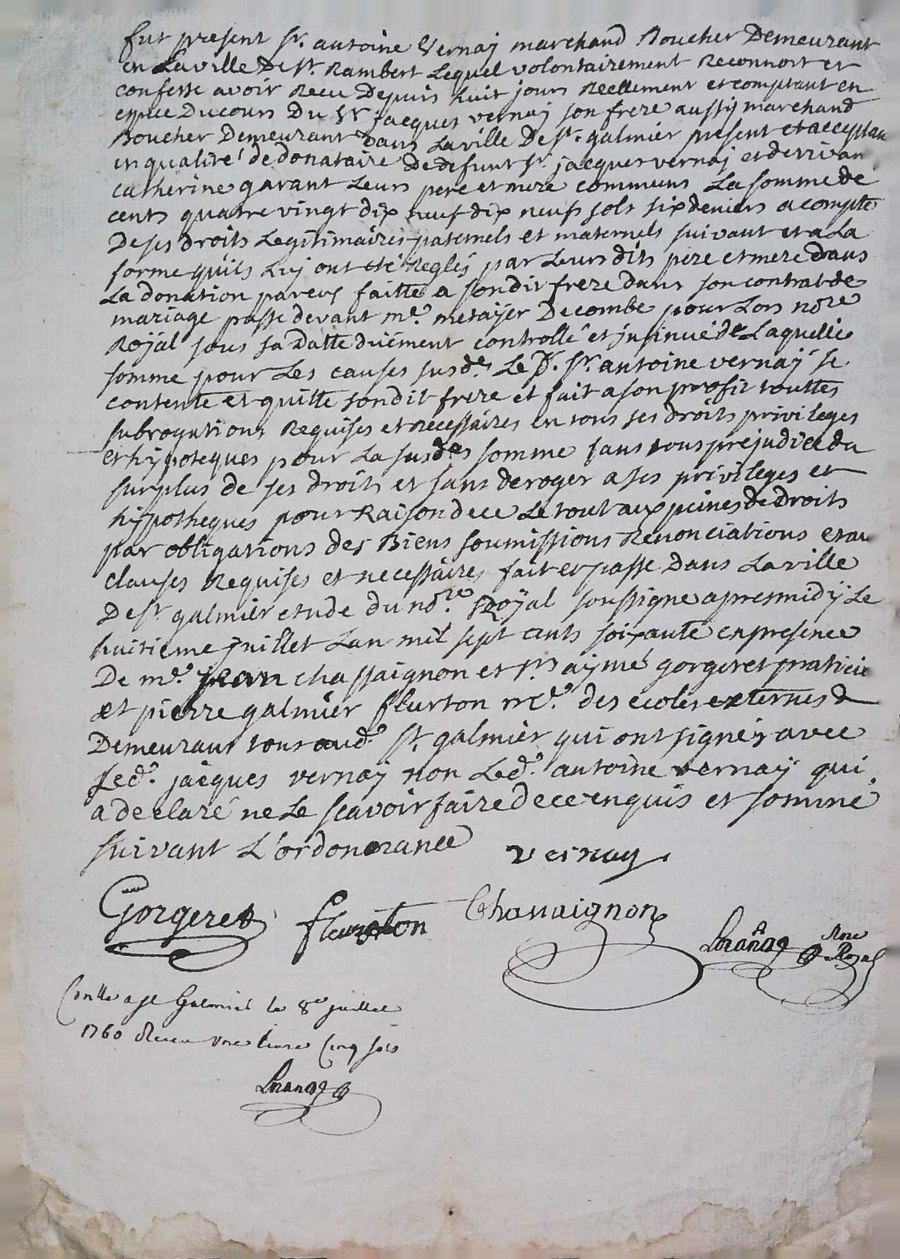 fut present sr. antoine Vernay marchand Boucher Demeurant
en Laville De st. Rambert Lequel volontairement Reconnoit et
confesse avoir Recu Depuis huit jours Reellement et comptant en
espece Ducours Du Sr jacques vernay son frere aussy marchand
Boucher Demeurant Dans Laville De st. galmier present et acceptan
en qualité de donataire De defunt sr. jacques vernay et de vivan
catherine garant Leurs pere et mere communs La somme de
cents quatre vingt dix neuf dix neufs sols six deniers a compte
De ses droits Legitimaires paternels et maternels suivant et a La
forme quils Luy ont été Reglés par Leurs dits pere et mere dans
La donation par eux faitte a son dit frere dans son contrat de
mariage passé devant me. metayer Decombe pour Lors nore
Royal sous sa Datte duëment controllé et insinué de Laquelle
somme pour Les causes susdes Le D. sr. antoine vernay se
contente et quitte son dit frere et fait a son profit touttes
subrogations Requises et necessaires en tous ses droits privileges
et hypoteques pour La susdes somme sans tous prejudice du
surplus de ses droits et sans deroger a ses privileges et
hypotheques pour Raison de ce Le tout aux peines de droits
par obligations des Biens soumissions Renonciations et au
clauses Requises et necessaires fait et passé Dans La ville
De st. galmier etude du nore Royal soussigné apres midy Le
huitieme juillet Lan mil sept cents soixante en presence
De me. jean chassaignon et sr. aymé gorgeret praticie
et pierre galmier fleurton me. des ecoles externes
Demeurant tous aud. st. galmier qui ont signés avec
Led. jacques vernay non Led. antoine vernay qui
a declaré ne Le scavoir faire de ce enquis et sommé
suivant L'ordonnance vernay
Gorgeret fleurton Chassaignon nore Royal
Conlle a st Galmier le 8e juillet
1760 Recu une livre cinq sols